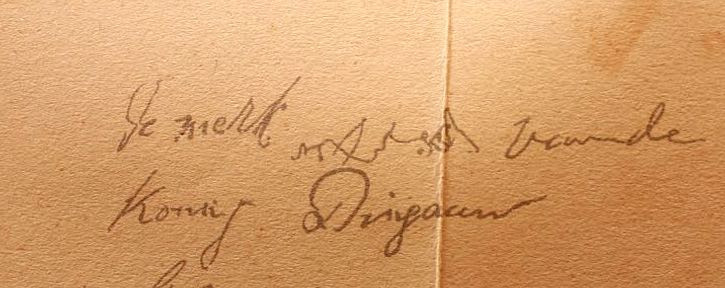 De merk vande
Konig Dingaan